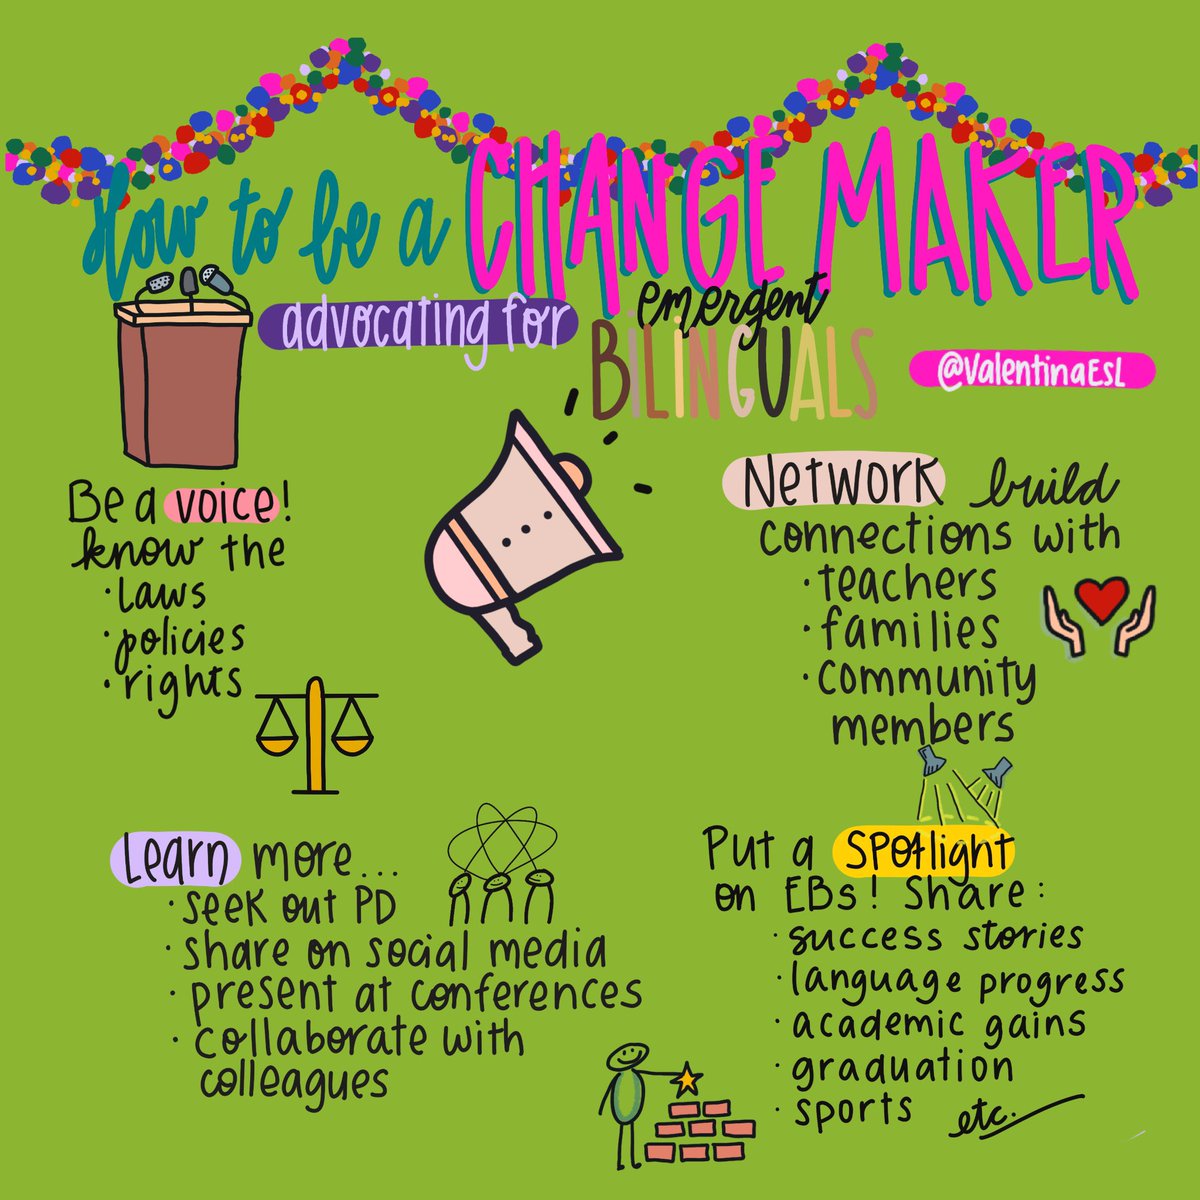 How to be a CHANGE MAKER
advocating for emergent
BILINGUALS
@ValentinaESL
Be a voice!
know the
· laws
· policies
· rights
Network build
connections with
· teachers
· families
· community
members
Learn more...
· seek out PD
· share on social media
· present at conferences
· collaborate with
colleagues
Put a SPOtlight
on EBs! Share:
· success stories
· language progress
· academic gains
· graduation
· sports etc.